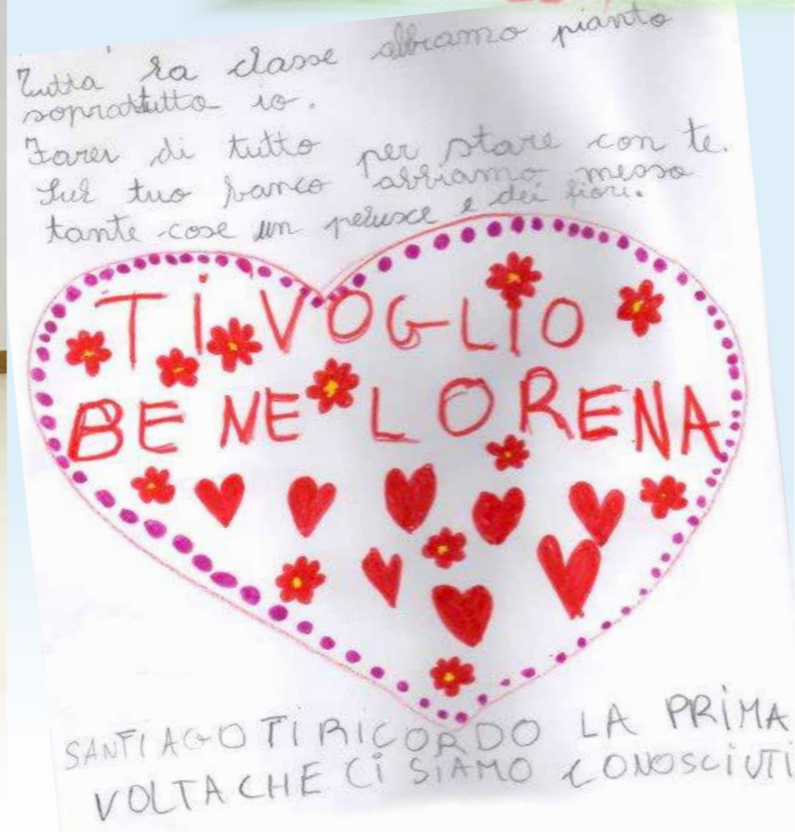 Tutta la classe abbiamo pianto
soprattutto io.
Farei di tutto per stare con te.
Sul tuo banco abbiamo messo
tante cose un pelusce e dei fiori.
TI VOGLIO
BENE LORENA
SANTIAGO TI RICORDO LA PRIMA
VOLTA CHE CI SIAMO CONOSCIUTI